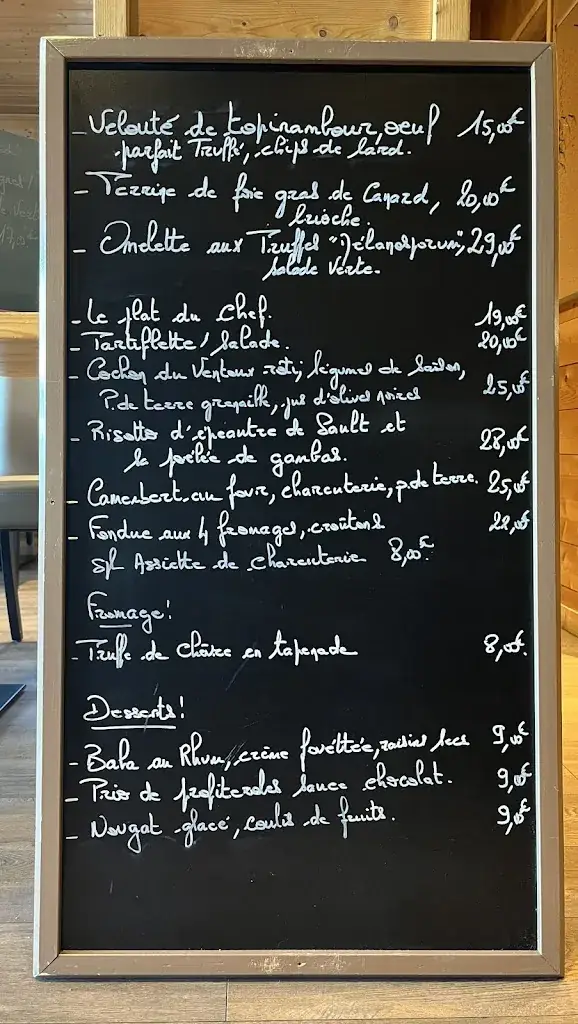 - Velouté de topinambour, oeuf 15,00€
parfait Truffé, chips de lard.
- Terrine de foie gras de Canard, 20,00€
brioche.
- Omelette aux Truffes "Mélanosporum", 29,00€
salade verte.
- Le plat du chef. 19,00€
- Tartiflette / Salade. 20,00€
- Cochon du Ventoux rôti, légumes de saison,
P. de terre grenaille, jus d'olives noires 25,00€
- Risotto d'épeautre de Sault et
la poêlée de gambas. 28,00€
- Camembert au four, charcuterie, p. de terre. 25,00€
- Fondue aux 4 fromages, croûtons 22,00€
spl Assiette de charcuterie 8,00€.
Fromage!
- Truffe de chèvre en tapenade 8,00€.
Desserts!
- Baba au Rhum, crème fouéttée, raisins secs 9,00€
- Trio de profiteroles sauce chocolat. 9,00€
- Nougat glacé, coulis de fruits. 9,00€